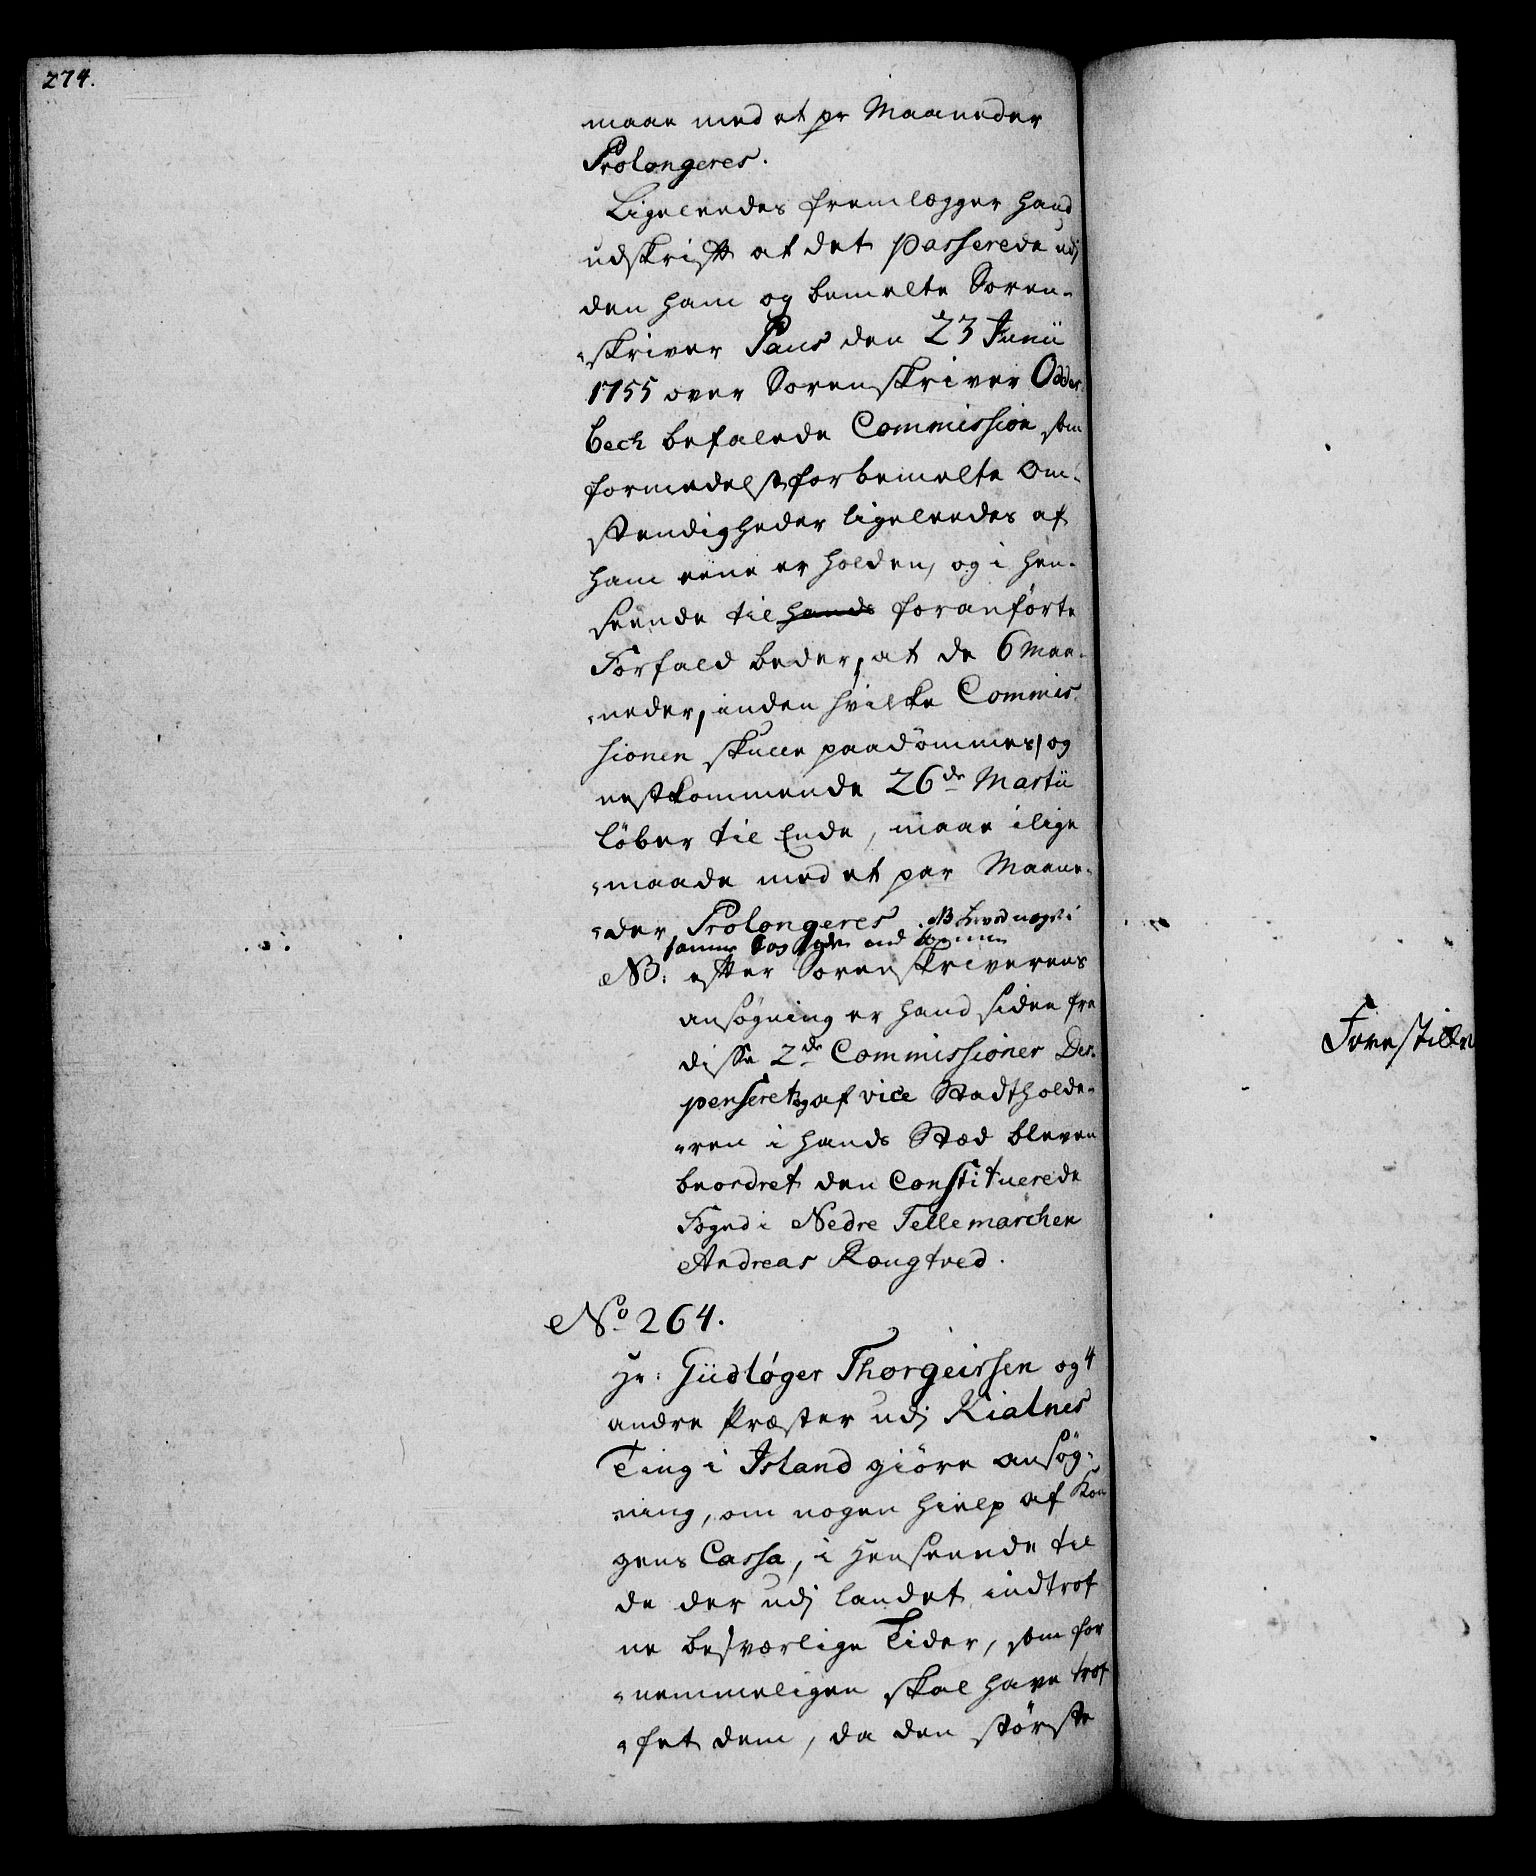 274.
maae med et pr Maaneder
Prolongeres.
Ligeleedes fremlegger hand
udskrift af det passerede udj
den ham og bemelte Soren-
skriver Paus den 23 Junii
1755 over Sorenskriver Odder-
bech befalede Commission som
formedelst forbemelte Om-
stendigheder ligeleedes af
ham eene er holden, og i hen-
seende til hands foranförte
Forfald beder, at de 6 Maa-
neder, inden hvilke Commis
sionen skulle paadömmes, og
nestkommende 26de Martii
löber til Ende, maae i lige
maade med et par Maane-
der Prolongeres. NB
NB: efter Sorenskriverens
ansögning er hand siden fra
disse 2de Commissioner Dis-
penseret og af vice Stadtholde-
ren i hands Sted bleven
beordret den Constituerede
Foged i Nedre Tellemarchen
Andreas Rougtved.
No 264.
Hr: Güdlöger Thorgeirssen og 4
andre Præster udj Kialnes
Ting i Island giöre ansög-
ning, om nogen hielp af Kon
gens Cassa, i Henseende til
de der udj landet indtrof
ne besværlige Tider, som for
nemmeligen skal have trof
fet dem, da den störste
Forestille